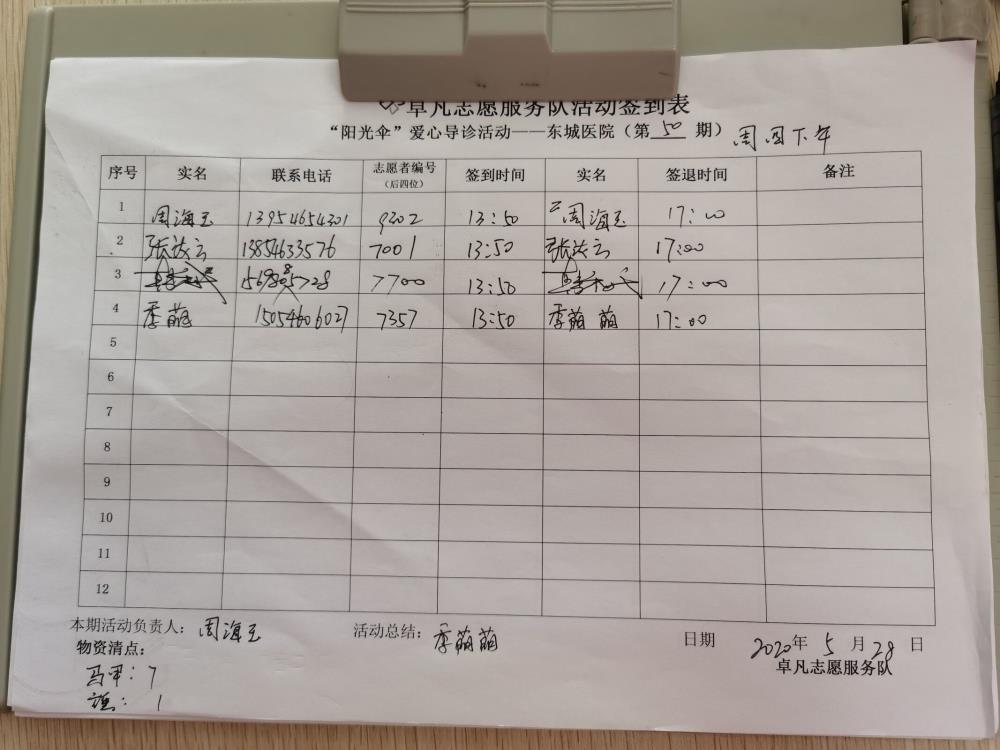 卓凡志愿服务队活动签到表
“阳光伞”爱心导诊活动——东城医院（第 50 期） 周四下午
序号 实名 联系电话 志愿者编号（后四位） 签到时间 实名 签退时间 备注
1 周海玉 13954654301 9202 13:50 周海玉 17:00
2 张汝云 13854633576 7001 13:50 张汝云 17:00
3 7700 13:50 17:00
4 季萌 15054606027 7357 13:50 季萌萌 17:00
5
6
7
8
9
10
11
12
本期活动负责人：周海玉 活动总结：季萌萌 日期 2020年 5 月 28 日
物资清点： 卓凡志愿服务队
马甲：7
旗：1